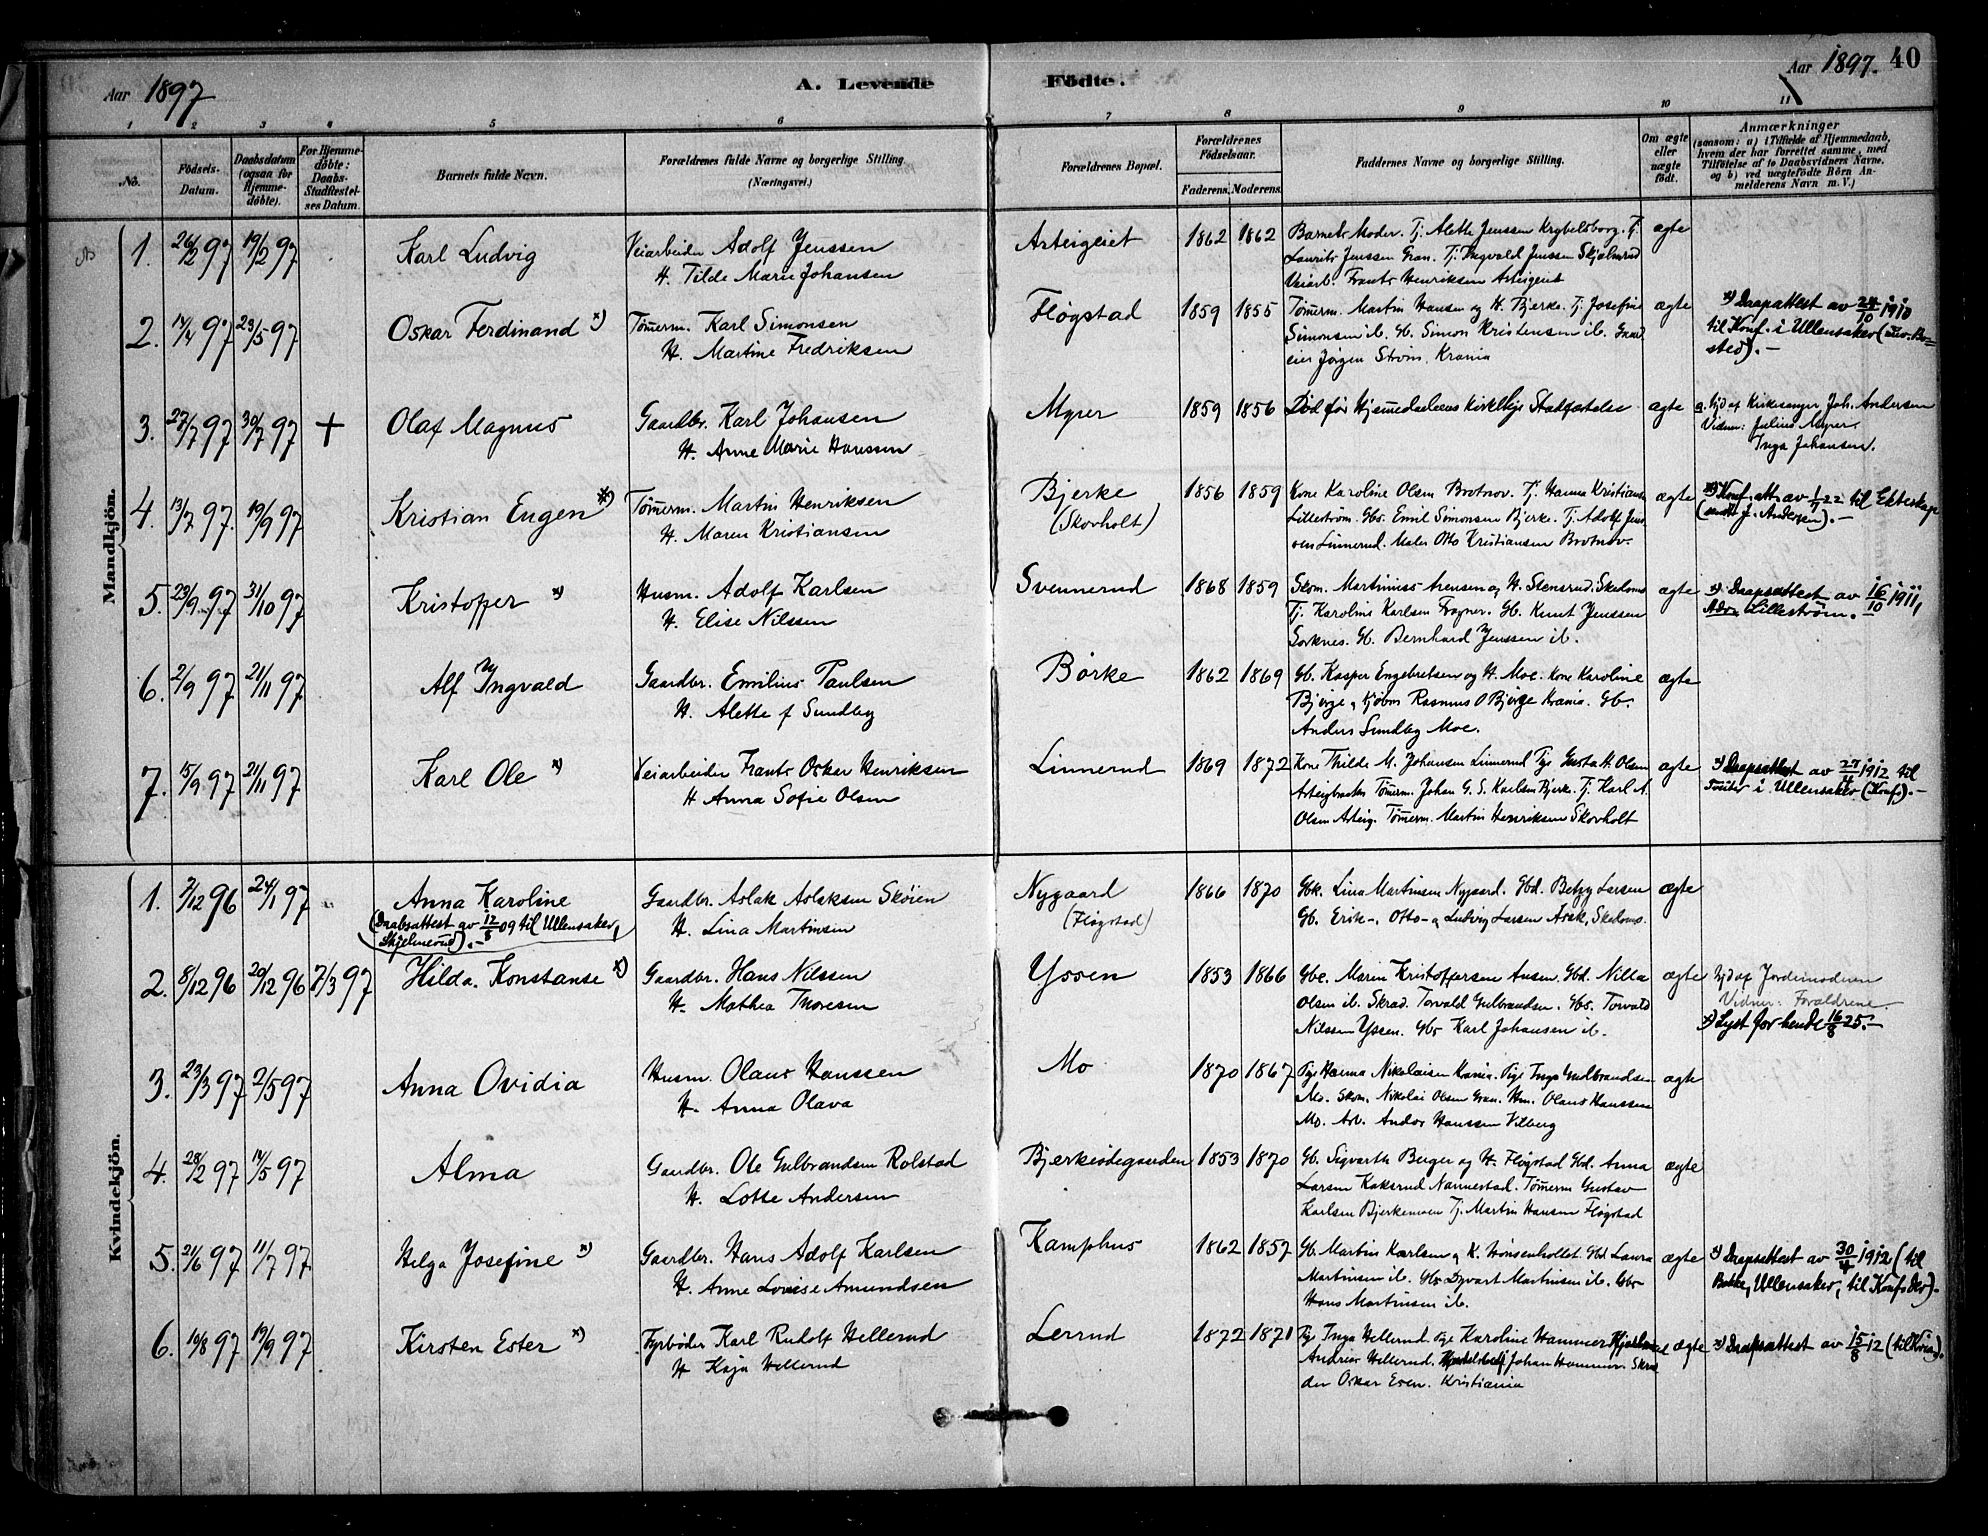 Aar 1897
A. Levende Födte.
Aar 1897. 40
1 2 3 4 5 6 7 8 9 10 11
No.
Födsels-Datum.
Daabsdatum (ogsaa for Hjemme-döbte).
For Hjemme-döbte: Daabs-Stadfæstel-ses Datum.
Barnets fulde Navn.
Forældrenes fulde Navne og borgerlige Stilling.
(Næringsvei.)
Forældrenes Bopæl.
Forældrenes Födselsaar.
Faderens. Moderens.
Faddernes Navne og borgerlige Stilling.
Om ægte eller uægte födt.
Anmærkninger
(saasom: a) i Tilfælde af Hjemmedaab, hvem der har forrettet samme, med Tilföielse af to Daabsvidners Navne. og b) ved uægtefödte Börn An-melderens Navn m. V.)
Mandkjön.
1. 26/2 97 19/2 97 Karl Ludvig
Veiarbeider Adolf Jenssen
H. Tilde Marie Johansen
Arteigeiet 1862 1862
Barnets Moder. Tj. Alette Jenssen Krybelsborg. Tj.
Laurits Jenssen Gran. Tj. Ingvald Jenssen Skjelmrud
Veiarb. Frants Henriksen Arteigeiet
ægte
2. 14/4 97 23/5 97 Oskar Ferdinand x)
Tømerm. Karl Simonsen
H. Martine Fredriksen
Fløgstad 1859 1855
Tømerm. Martin Hansen og H. Bjerke. Tj. Josefine
Simonsen ib. Gb. Simon Kristensen ib. Gaard
eier Jørgen Strøm. Krania
ægte
x) Daapsattest av 24/10 1910
til Konf. i Ullensaker (nuv. Bo=
sted). -
3. 27/7 97 30/7 97 + Olaf Magnus
Gaardbr. Karl Johansen
H. Anne Marie Hanssen
Myrer 1859 1856
Død før Hjemmedaabens kirkelige Stadfæstelse
ægte
a. Hjd af Kirkesanger Joh. Andersen
Vidner: Julius Myrer.
Inga Johansen.
4. 13/7 97. 19/9 97 Kristian Eugen x)
Tømerm. Martin Henriksen
H. Maren Kristiansen
Bjerke
(Skovholt)
1856 1859
Kone Karoline Olsen Brotnov. Tj. Hanna Kristians
Lillestrøm. Gbs. Emil Simonsen Bjerke. Tj. Adolf Jens
sen Linnerud. Maler Otto Kristiansen Brotnov.
ægte
x) Konf. att. av 1/7 22 til Ekteskap
5. 23/9 97 31/10 97 Kristoffer x)
Husm. Adolf Karlsen
H. Elise Nilssen
Svennerud 1868 1859
Skom. Martinius Arensen og H. Stensrud, Skedsmo
Tj. Karoline Karlsen Frogner. Gb. Knut Jenssen
Sorknes. Gb. Bernhard Jenssen ib.
ægte
x) Daapsattest av 16/10 1911,
Lillestrøm.
6. 2/9 97 21/11 97 Alf Yngvald
Gaardbr. Emilius Paulsen
H. Alette f Sundby
Børke 1862 1869
Gb. Kasper Engebretsen og H. Moe. Kone Karoline
Bjørge, Kjøbm Rasmus O Bjørge Krania. Gb.
Anders Sundby Moe.
ægte
7. 15/9 97 21/11 97 Karl Ole x)
Veiarbeider Frants Oskar Henriksen
H Anna Sofie Olsen
Linnerud 1869 1872
Kone Thilde M. Johansen Linnerud Pige Gusta H. Olsen
Tømerm. Johan G. S. Karlsen Bjerke. Tj. Karl A.
Olsen Arteig. Tømerm. Martin Henriksen Skovholt
ægte
x) Daapsattest av 27/4 1912 til
i Ullensaker (Konf.). -
Kvindekjön.
1. 7/12 96 24/1 97 Anna Karoline
(Daabsattest av 12/8 09 til Ullensaker,
Skjelmerud). -
Gaardbr. Aslak Aslaksen Skøien
H. Lina Martinsen
Nygaard
(Fløgstad)
1866 1870
Gbk. Lina Martinsen Nygaard. Gbd. Betzy Larsen
Gb. Erik-, Otto- og Ludvig Larsen Asak, Skedsmo.
ægte
2. 8/12 96 20/12 96 7/3 97 Hilda Konstanse x)
Gaardbr. Hans Nilssen
H. Mathea Thoresen
Yssen 1853 1866
Gbe. Maren Kristoffersen Ausen. Gbd. Nilla
Olsen ib. Skræd. Torvald Gulbrandsen. Gbs. Torvald
Nilssen Yssen. Gbs Karl Johansen ib.
ægte
Hjd af Jordemoderen
Vidner: Forældrene
x) Lyst for hende 16/8 25. -
3. 23/3 97 2/5 97 Anna Ovidia
Husm. Olaus Hanssen
H. Anna Olava
Mo 1870 1867
Pige Hanna Nikolaisen Krania. Pige Inga Gulbrandsen
Mo. Skom. Nikolai Olsen Gran. Hm. Olaus Hanssen
Mo. Arb. Andor Hanssen Vilberg
ægte
4. 28/2 97 14/5 97 Alma
Gaardbr. Ole Gulbrandsen Rolstad
H. Lotte Andersen
Bjerkeødegaarden 1853 1870
Gb. Sigvarth Berger og H. Fløgstad Gbd. Anna
Larsen Kaksrud Nannestad. Tømerm Gustav
Karlsen Bjerkemoen Tj. Martin Hansen Fløgstad
ægte
5. 21/6 97 11/7 97 Helga Josefine x)
Gaardbr. Hans Adolf Karlsen
H. Anne Lovise Amundsen
Kamphus 1862 1857
Gb. Martin Karlsen og H. Hønsenhollet. Gbd Laura
Martinsen ib. Gbs Dyvart Martinsen ib. Gbs
Hans Martinsen ib.
ægte
x) Daapsattest av 30/4 1912 (til
Ullensaker, til Konf. der). -
6. 10/8 97 19/9 97 Kirsten Ester x)
Fyrbøder Karl Rudolf Hellerud
H Kaja Hellerud
Lerrud 1872 1871
Pige Inga Hellerud Pige Karoline Hammer
Andreas Hellerud. Johan Hammer. Skræ
der Oskar Evensen. Kristiania
ægte
x) Daapsattest av 15/8 12 (til Kria).